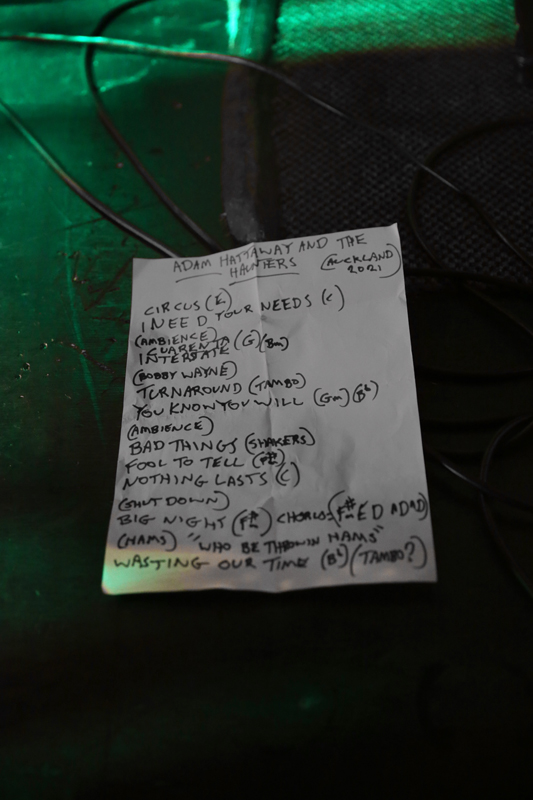 ADAM HATTAWAY AND THE
HAUNTERS (AUCKLAND
2021)
CIRCUS (K)
I NEED YOUR NEEDS (C)
(AMBIENCE)
I GUARENTO (G) (Bm)
INTERSTATE
(BOBBY WAYNE)
TURNAROUND (TAMBO)
YOU KNOW YOU WILL (Gm) (Bb)
(AMBIENCE)
BAD THINGS (SHAKERS)
FOOL TO TELL (F#)
NOTHING LASTS (C)
(SHUT DOWN)
BIG NIGHT (F#) CHORUS: (F#ED ADAD)
(HAMS) "WHO BE THROWIN HAMS"
WASTING OUR TIME (Bb) (TAMBO?)